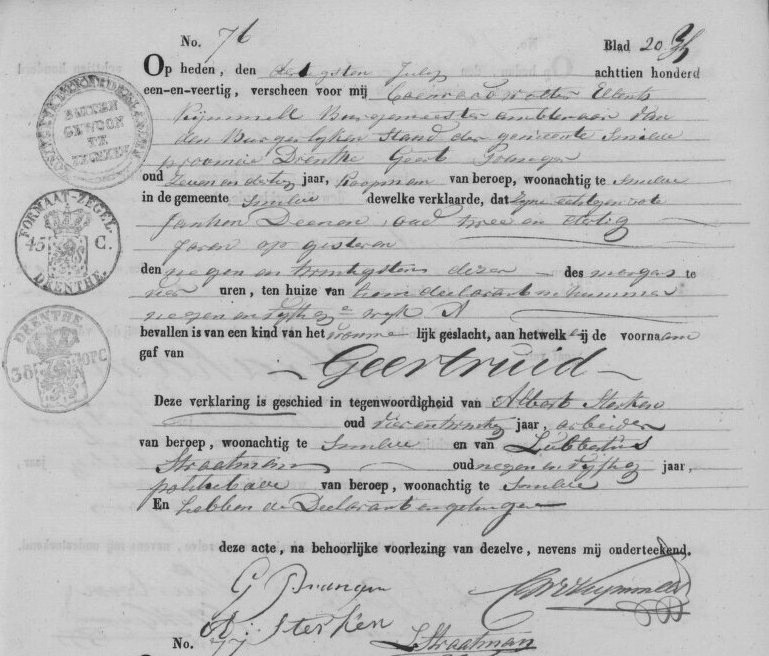 No. 76 Blad 20
Op heden, den dertigsten July achttien honderd
een-en-veertig, verscheen voor mij Coenraad Wolter Ellents
Kijmmell Burgemeester ambtenaar van
den Burgerlyken Stand der gemeente Smilde
provincie Drenthe Geert
oud Zeven en dertig jaar, Koopman van beroep, woonachtig te Smilde
in de gemeente Smilde dewelke verklaarde, dat zyne echtgenoote
Janken Deenen oud twee en dertig
Jaren op gisteren
den negen en twintigsten dezer des morgens te
vier uren, ten huize van hem declarant in nummer
negen en vyftig wyk A
bevallen is van een kind van het vrouwelijk geslacht, aan hetwelk hij de voornaam
gaf van Geertruid
Deze verklaring is geschied in tegenwoordigheid van Albert Sterken
oud vier en twintig jaar, arbeider
van beroep, woonachtig te Smilde en van Lubbertus
Straatman oud negen en vyftig jaar,
van beroep, woonachtig te Smilde
En hebben de Declarant en getuigen
deze acte, na behoorlijke voorlezing van dezelve, nevens mij onderteekend.
G
A Sterken
L Straatman
No. 77
BUITEN
GEWOON
TE
FORMAAT-ZEGEL.
45 C.
DRENTHE.
DRENTHE
38 OPC